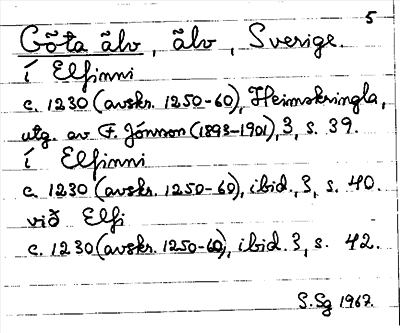 5
Göta älv, älv, Sverige.
í Elfinni
c. 1230 (avskr. 1250-60), Heimskringla,
utg. av F. Jónsson (1893-1901), 3, s. 39.
í Elfinni
c. 1230 (avskr. 1250-60), ibid., 3, s. 40.
við Elfi
c. 1230 (avskr. 1250-60), ibid. 3, s. 42.
S. Sg 1967.